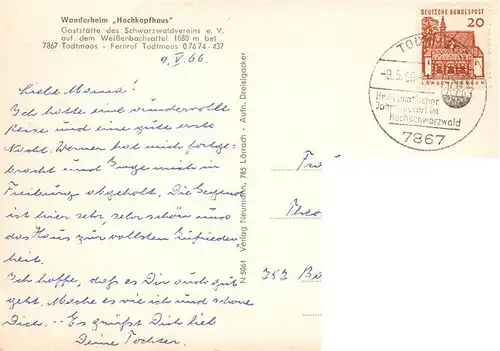 Wanderheim „Hochkopfhaus"
Gaststätte des Schwarzwaldvereins e. V.
auf dem Weißenbachsattel 1080 m bei
7867 Todtmoos - Fernruf Todtmoos 0 76 74 - 437
9. V. 66.
Liebe Mama!
Ich hatte eine wundervolle
Reise und eine gute erste
Nacht. Werner hat mich fortge-
bracht und Inge mich in
Freiburg abgeholt. Die Gegend
ist hier sehr, sehr schön und
das Haus zur vollsten Zufrieden-
heit.
Ich hoffe, daß es Dir auch gut
geht. Mache es wie ich und schone
Dich. - Es grüßt Dich lieb
Deine Tochter.
N 5061 Verlag Neumann, 785 Lörrach - Aufn. Dreisigacker
DEUTSCHE BUNDESPOST
20
LORSCH HESSEN
-9.5.66
Heilklimatischer
Jahreskurort im
Hochschwarzwald
7867
Fra
Theo
757 Ba